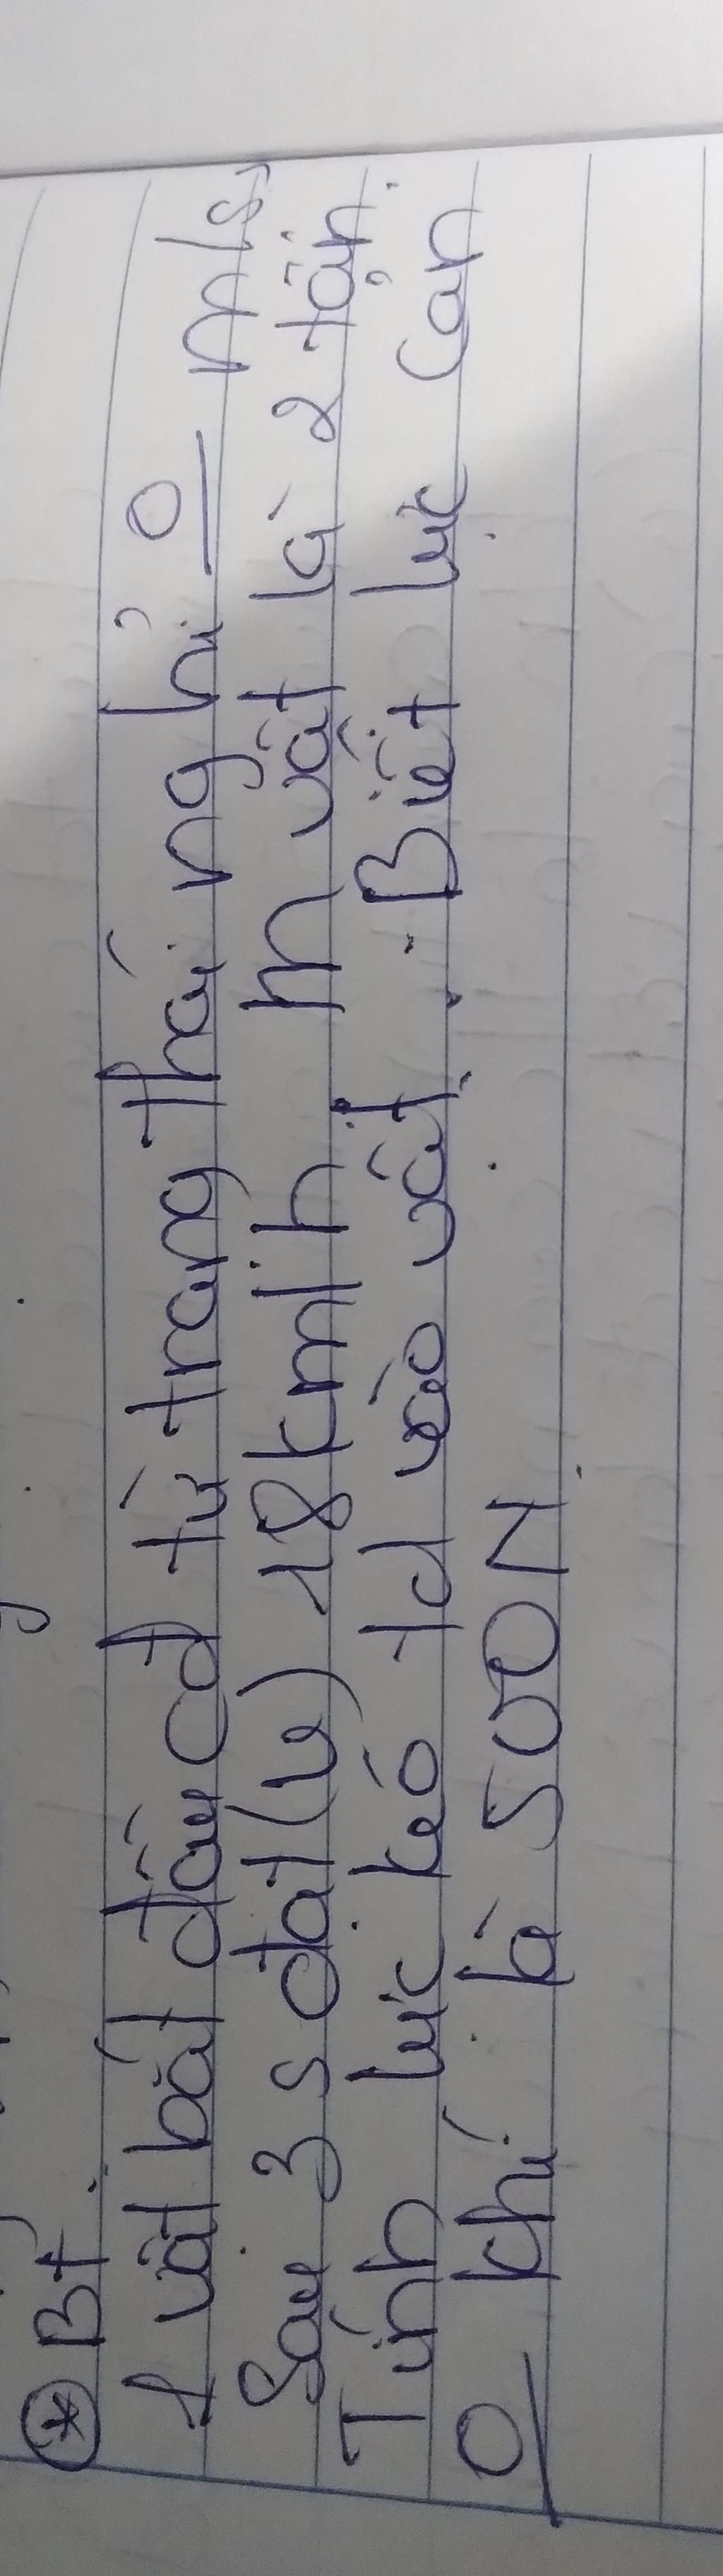 * Bt.
1 vật bắt đầu cđ từ trạng thái nghỉ 0 m/s,
Sau 3 s đạt (v) 18 km/h. m vật là 2 tấn.
Tính lực kéo td vào vật. Biết lực cản
0 khí là 500 N.